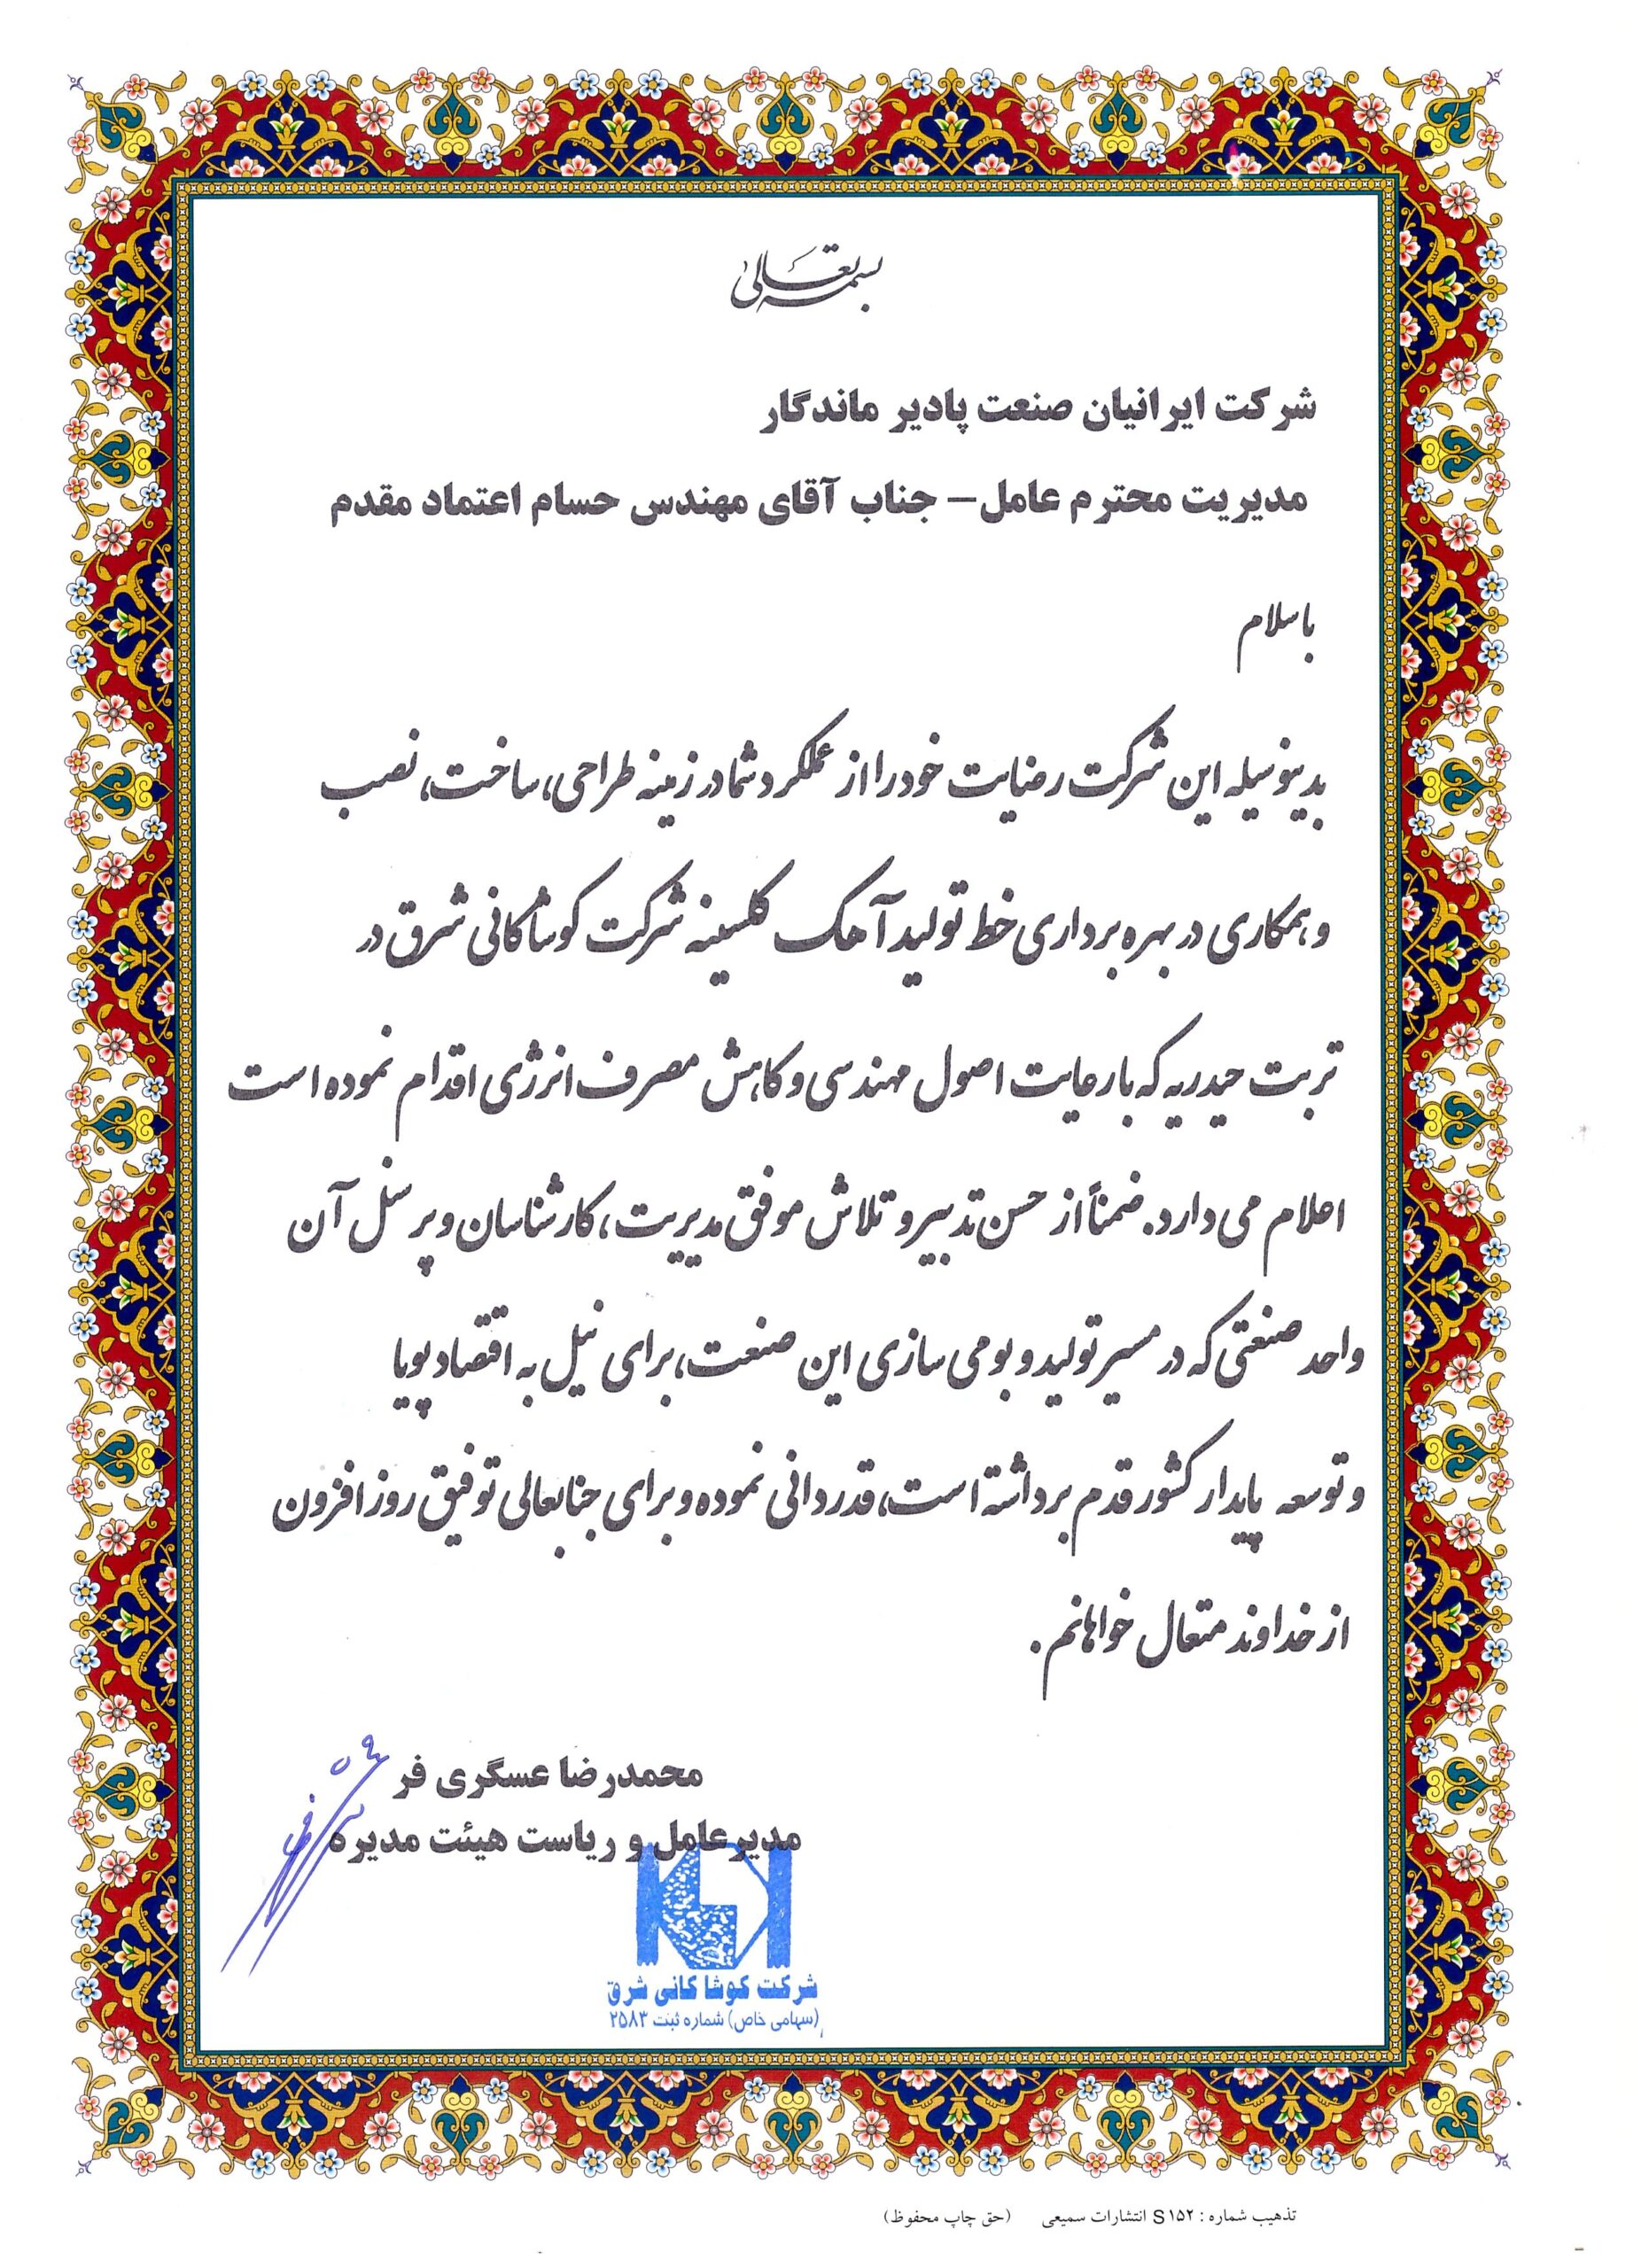 بسمه تعالی
شرکت ایرانیان صنعت پادیر ماندگار
مدیریت محترم عامل– جناب آقای مهندس حسام اعتماد مقدم
باسلام
بدینوسیله این شرکت رضایت خود را از عملکرد شما در زمینه طراحی، ساخت، نصب
و همکاری در بهره برداری خط تولید آهک کلسینه شرکت کوشا کانی شرق در
تربت حیدریه که با رعایت اصول مهندسی و کاهش مصرف انرژی اقدام نموده است
اعلام می دارد. ضمناً از حسن تدبیر و تلاش موفق مدیریت، کارشناسان و پرسنل آن
واحد صنعتی که در مسیر تولید و بومی سازی این صنعت، برای نیل به اقتصاد پویا
و توسعه پایدار کشور قدم برداشته است، قدردانی نموده و برای جنابعالی توفیق روز افزون
از خداوند متعال خواهانم.
محمدرضا عسگری فر
مدیرعامل و ریاست هیئت مدیره
شرکت کوشا کانی شرق
(سهامی خاص) شماره ثبت ۲۵۸۳
تذهیب شماره : S۱۵۲ انتشارات سمیعی (حق چاپ محفوظ)